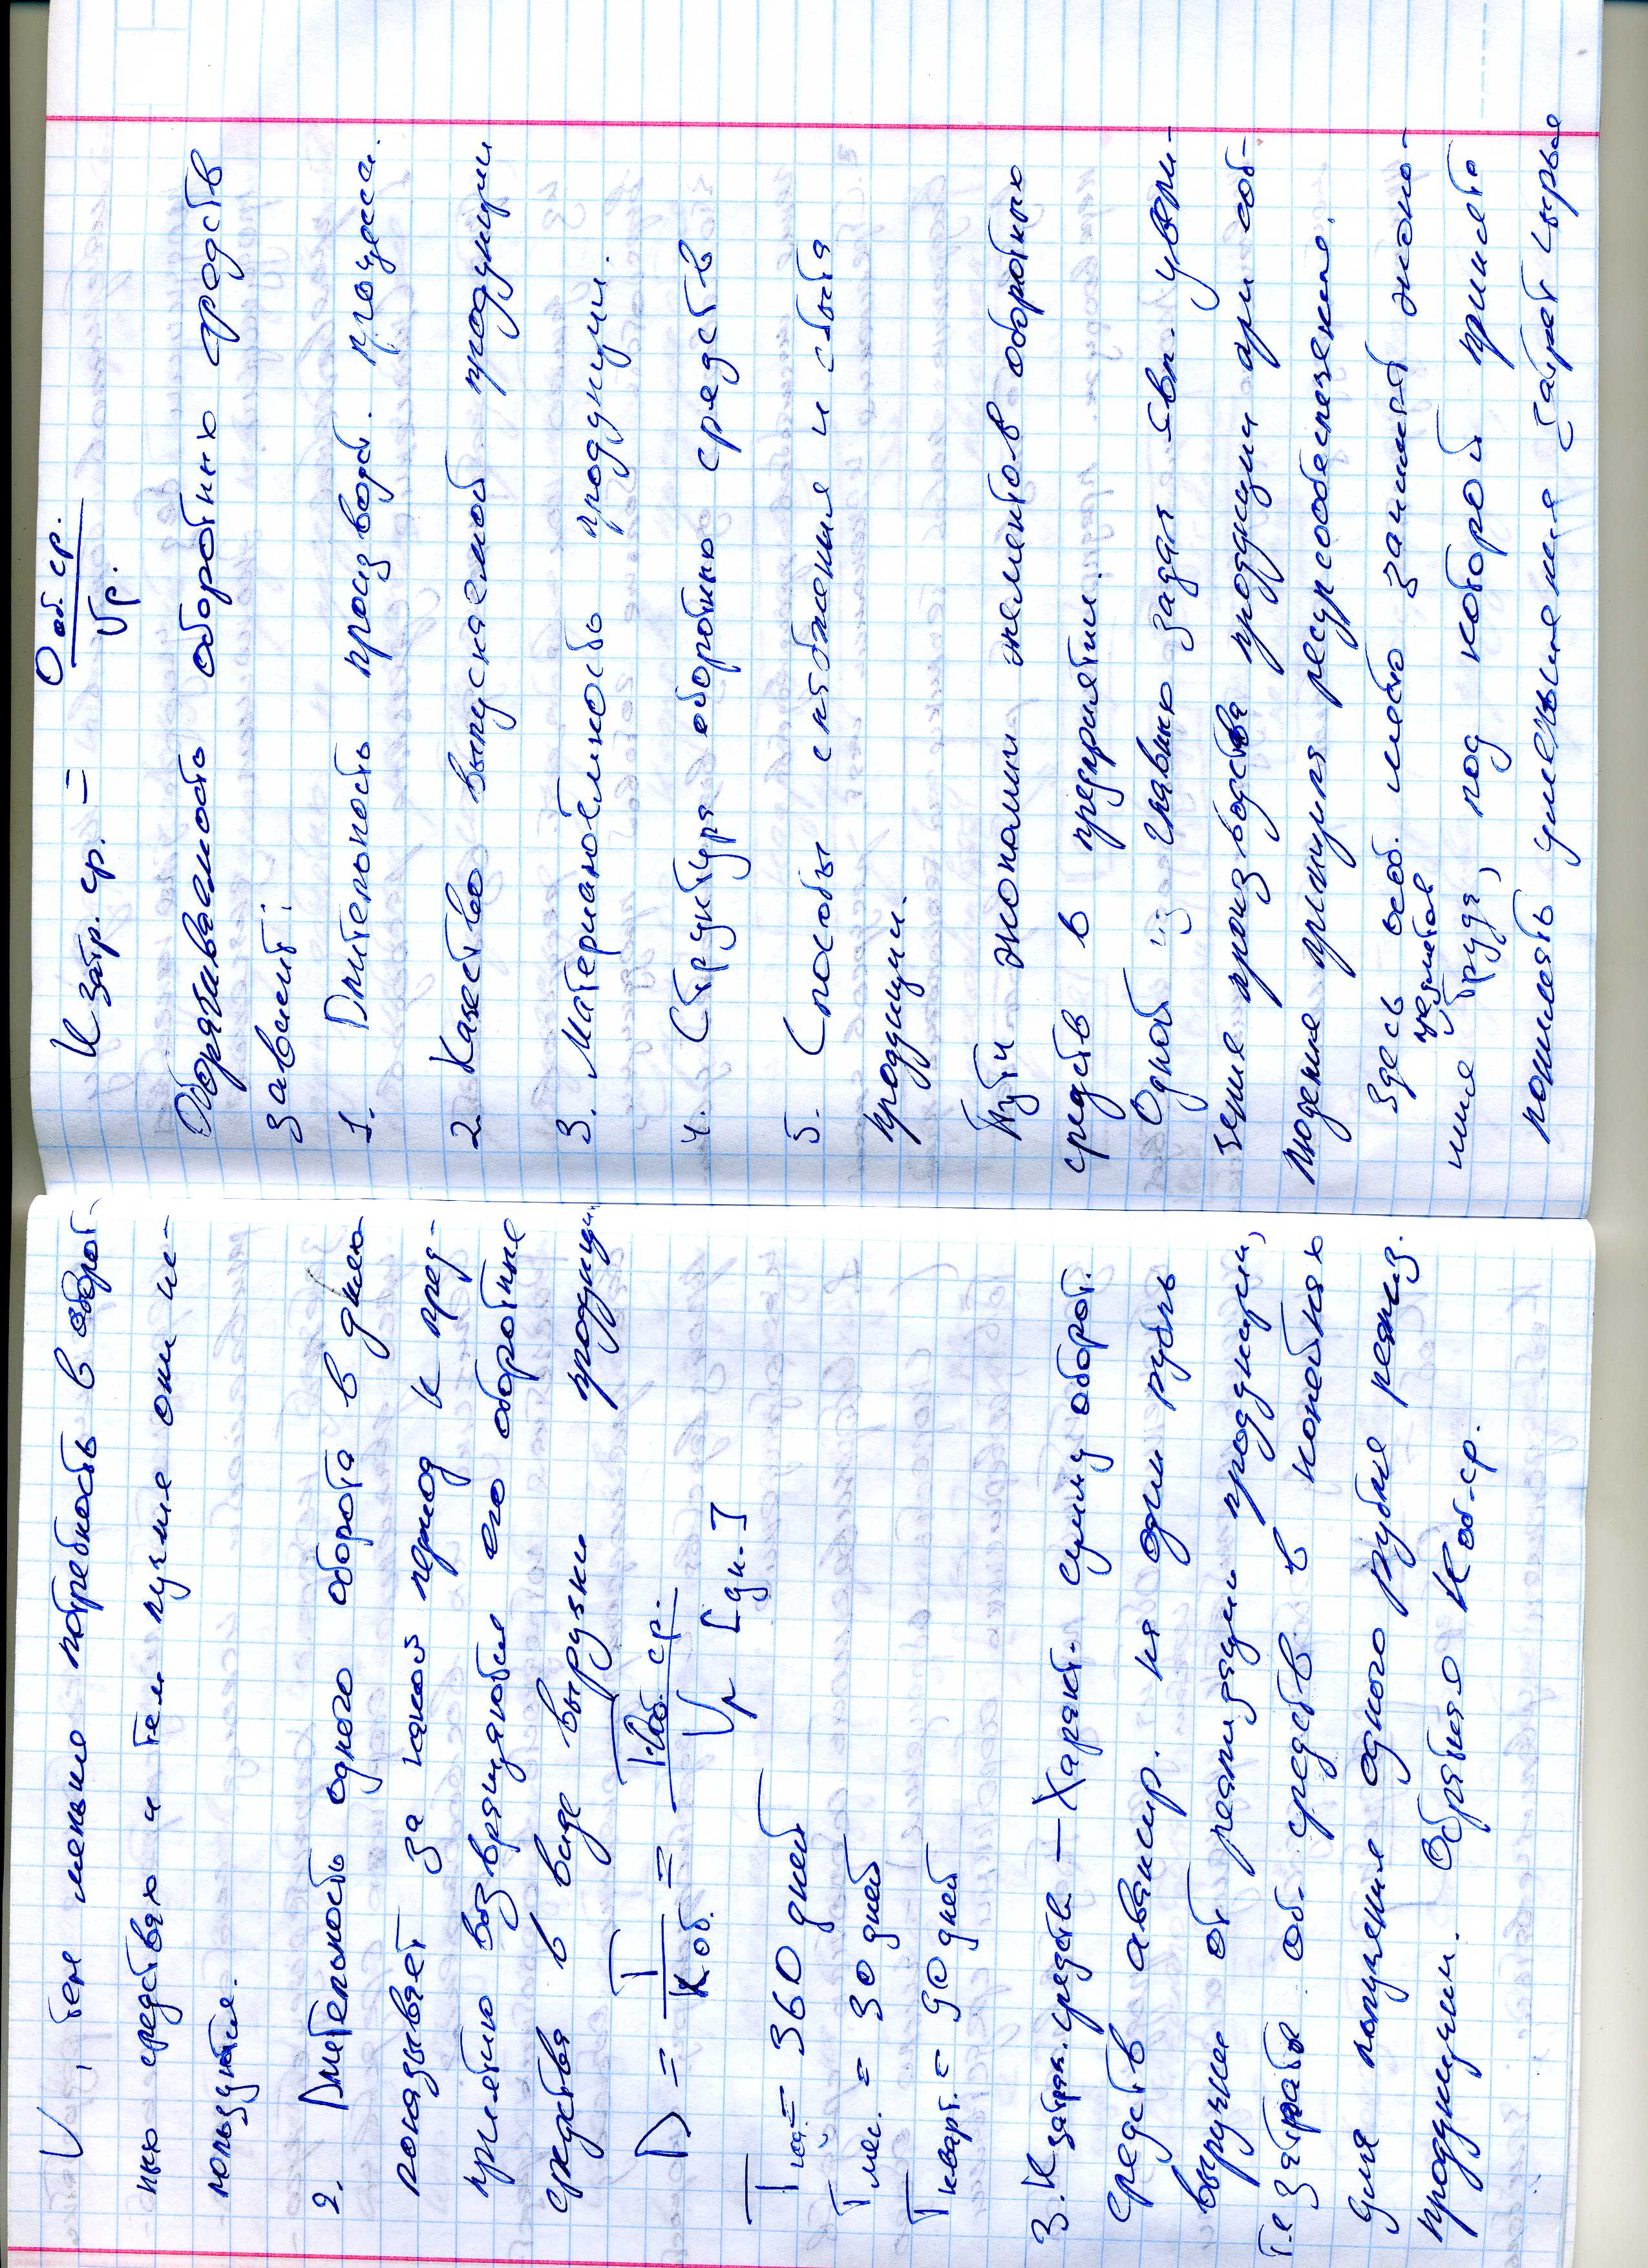 V, тем меньше потребность в оборот-
ных средствах и тем лучше они ис-
пользуются.
2. Длительность одного оборота в днях
показывает за какой период к пред-
приятию возвращаются его оборотные
средства в виде выручки продукции
D = T / К об. = T·Ооб. ср. / Vр [дн.]
T год = 360 дней
T мес. = 30 дней
T кварт. = 90 дней
3. К затрат. средств — Характ. сумму оборот.
средств авансир. на один рубль
выручки от реализации продукции,
т.е затраты об. средств в копейках
для получения одного рубля реализ.
продукции. Обратная К об-ср.
К затр. ср. = О об. ср. / Vр.
Оборачиваемость оборотных средств
зависит:
1. Длительность производст. процесса.
2. Качество выпускаемой продукции
3. Материалоёмкость продукции.
4. Структура оборотных средств
5. Способы снабжения и сбыта
продукции.
Пути экономии элементов оборотных
средств в предприятии.
Одной из главных задач явл. увели-
чение производства продукции при соб-
людение принципа ресурсообеспечения.
Здесь особ. место занимает эконо-
мия предметов труда, под которой принято
понимать уменьшения затрат сырья